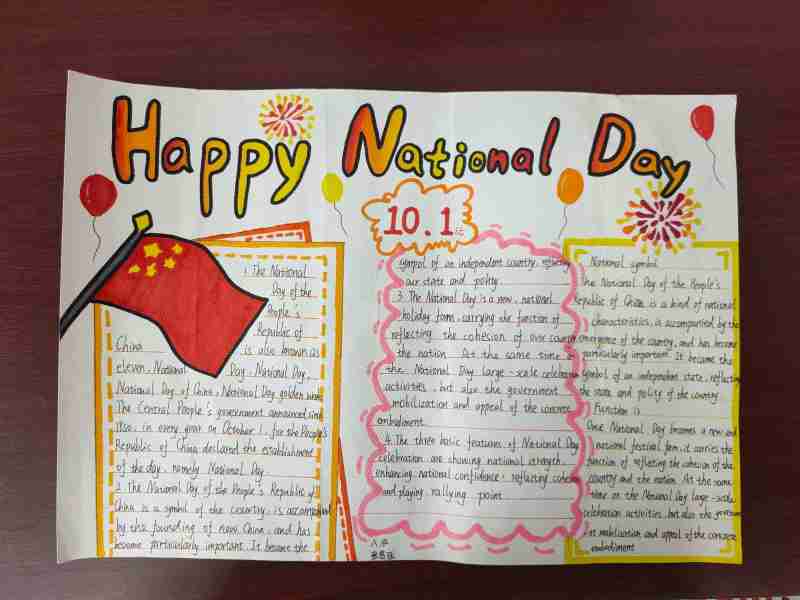 Happy National Day
10.1
1 The National
Day of the
People's
Republic of
China is also known as
eleven, National Day, National Day,
National Day of China, National Day golden week
The Central People's government announced, since
1950, in every year on October 1, for the People's
Republic of China declared the establishment
of the day, namely National Day.
2 The National Day of the People's Republic of
China is a symbol of the country, is accompanied
by the founding of new China, and has
become particularly important. It became the
symbol of an independent country, reflecting
our state and polity.
3. The National Day is a new, national
holiday form, carrying the function of
reflecting the cohesion of over country
the nation. At the same time, on
the National Day large-scale celebration
activities, but also the government
mobilization and appeal of the concrete
embodiment.
4. The three basic features of National Day
celebration are showing national strength.
enhancing national confidence, reflecting cohesion
and playing rallying point
National symbol
The National Day of the People's
Republic of China is a kind of national
characteristics, is accompanied by the
emergence of the country, and has become
particularly important. It became the
symbol of an independent state, reflecting
the state and polity of the country
Function is
Once National Day becomes a new and
national festival form, it carries the
function of reflecting the cohesion of the
country and the nation. At the same
time on the National Day large-scale
celebration activities, but also the government
mobilization and appeal of the concrete
embodiment